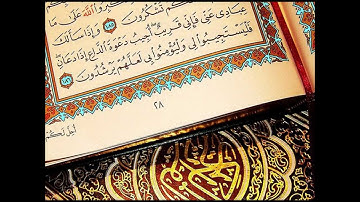 بِّرُوا۟ ٱللَّهَ عَلَىٰ مَا
كُمْ تَشْكُرُونَ ١٨٥ وَإِذَا سَأَلَكَ
عِبَادِى عَنِّى فَإِنِّى قَرِيبٌ أُجِيبُ دَعْوَةَ ٱلدَّاعِ إِذَا دَعَانِ
فَلْيَسْتَجِيبُوا۟ لِى وَلْيُؤْمِنُوا۟ بِى لَعَلَّهُمْ يَرْشُدُونَ ١٨٦
٢٨
أُحِلَّ لَكُمْ